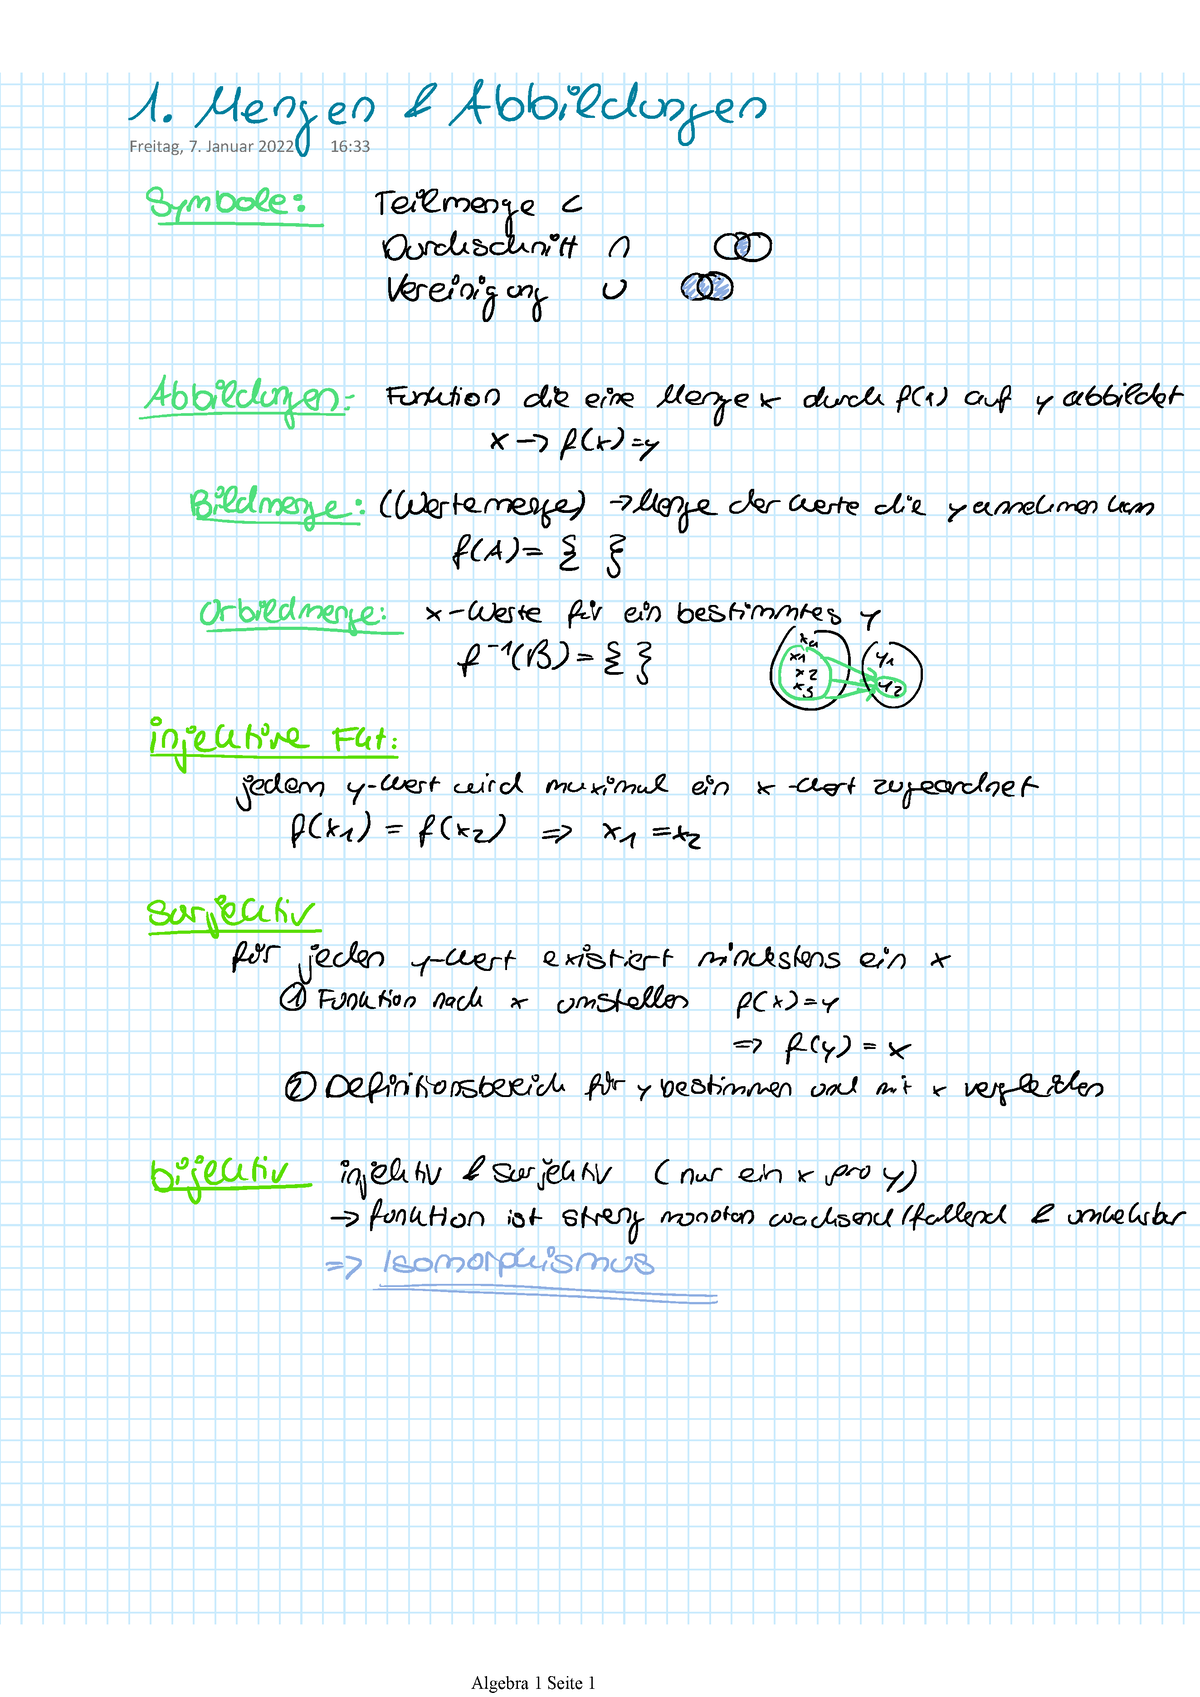 1. Mengen & Abbildungen
Freitag, 7. Januar 2022 16:33
Symbole: Teilmenge ⊂
Durchschnitt ∩
Vereinigung ∪
Abbildungen: Funktion die eine Menge x durch f(x) auf y abbildet
x → f(x)=y
Bildmenge: (Wertemenge) → Menge der Werte die y annehmen kann
f(A) = { }
Urbildmenge: x-Werte für ein bestimmtes y
f⁻¹(B) = { }
x4
x1 y1
x2
x3 y2
injektive Fkt:
jedem y-Wert wird maximal ein x-Wert zugeordnet
f(x1) = f(x2) ⇒ x1 = x2
surjektiv
für jeden y-Wert existiert mindestens ein x
① Funktion nach x umstellen f(x)=y
⇒ f(y) = x
② Definitionsbereich für y bestimmen und mit x vergleichen
bijektiv injektiv & surjektiv (nur ein x pro y)
→ funktion ist streng monoton wachsend/fallend & umkehrbar
⇒ Isomorphismus
Algebra 1 Seite 1